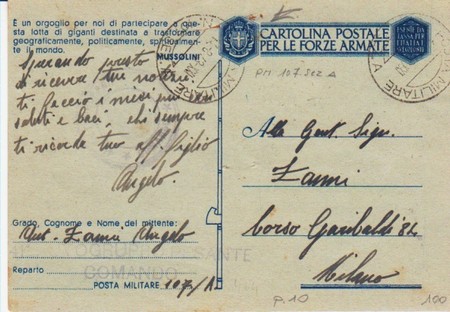 È un orgoglio per noi di partecipare a que-
sta lotta di giganti destinata a trasformare
geograficamente, politicamente, spiritualmen-
te il mondo.
MUSSOLINI
Sperando presto
di ricevere tue notizie
ti faccio i miei più
saluti e baci, chi sempre
ti ricorda tuo aff. figlio
Angelo.
Grado, Cognome e Nome del mittente:
Zanni Angelo
COMANDO
Reparto
POSTA MILITARE 107/A
CARTOLINA POSTALE
PER LE FORZE ARMATE
PM 107 SEZ A
POSTA MILITARE
Alla Gent. Sign.
Zanni
Corso Garibaldi 84
Milano
p. 10
100